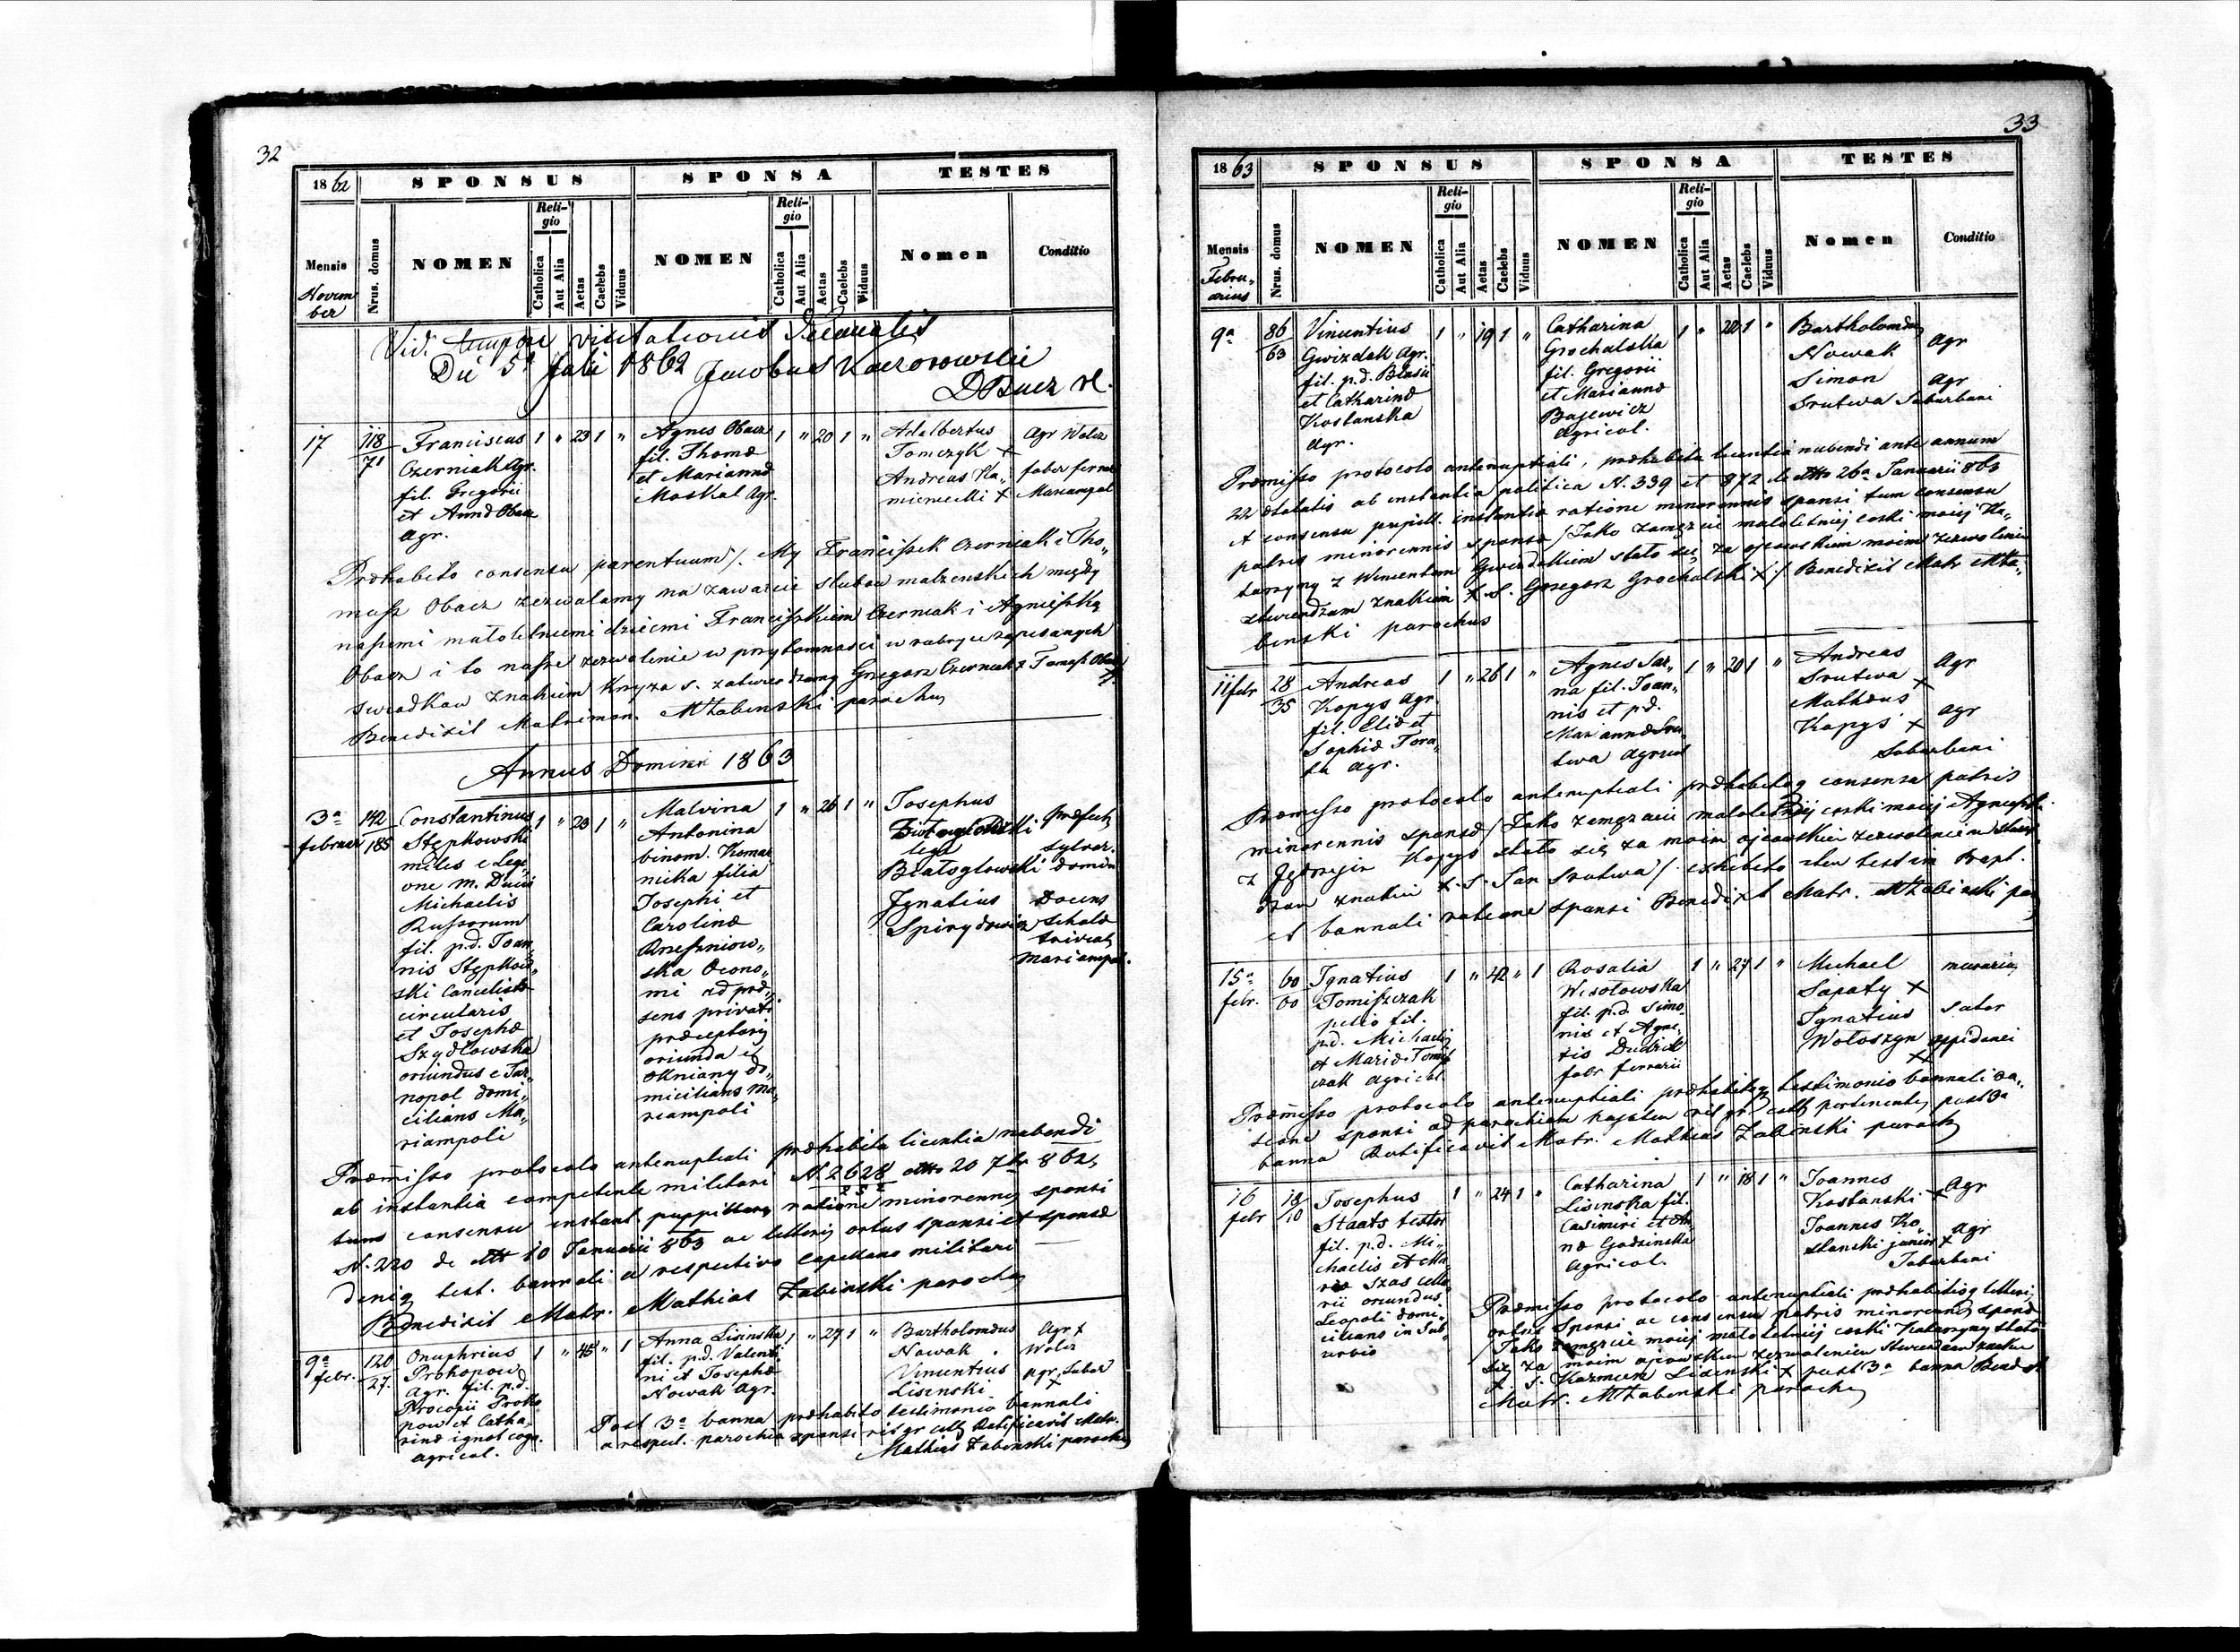 32
18 62
SPONSUS
SPONSA
TESTES
Mensis
Novem
ber
Nrus. domus
NOMEN
Reli-
gio
Catholica
Aut Alia
Aetas
Caelebs
Viduus
NOMEN
Reli-
gio
Catholica
Aut Alia
Aetas
Caelebs
Viduus
Nomen
Conditio
Vid. tempore visitationis Decanalis
Die 5ª Julii 1862 Jacobus Kaczorowski
17
118
71
Franciscus
Czerniak Agr.
fil. Gregorii
et Annæ Obacz
Agr.
1 " 23 1 "
Agnes Obacz
fil. Thomæ
et Mariannæ
Moskal Agr.
1 " 20 1 "
Adelbertus
Tomczyk +
Andreas Ka„
mieniecki +
Agr Wolcz
faber ferrar
Mariampol
Præhabito consensu parentuum /. My Franciszek Czerniak i Tho„
masz Obacz zezwalamy na zawarcie slubow malzenskich między
naszemi małoletniemi dziećmi Franciszkiem Czerniak i Agnieszką
Obacz i to nasze zezwolenie w przytomności w rubryce zapisanych
swiadkow znakiem Krzyza s. zatwierdzamy Grzegorz Czerniak + Tomasz Obacz
Benedixit Matrimon. MŁabinski parochus
Annus Domini 1863
3ª
februar
142
185
Constantinus
Stępkowski
miles e Legi
one M. Ducis
Michaelis
Russorum
fil. p.d. Joan„
nis Stępkow„
ski Cancelistæ
circularis
et Josephæ
Szydłowska
oriundus e Tar„
nopol domi„
cilians Ma„
riampoli
1 " 23 1 "
Malvina
Antonina
binom. Komar
nicka filia
Josephi et
Carolinæ
Krzeszniow„
ska Oecono„
mi ad præ„
sens privati
præceptoris
oriunda e
Okniany do„
micilians Ma„
riampoli
1 " 26 1 "
Josephus
lege
Białogłowski
Ignatius
Spirydowicz
præfectus
sylvar.
domin
Docens
scholæ
trivialis
Mariampol.
Præmisso protocolo antenuptiali præhabita licentia nubendi
ab instantia competente militari N. 2628 dtto 20 7br 862,
tum consensu instant. puppillaris ratione minorennis sponsi
N. 220 de dtto 10 Januarii 863 ac litteris ortus sponsi et sponsæ
deniq test. bannali a respectivo capellano militari
Benedixit Matr. Mathias Łabinski parochus
9ª
febr.
120
27.
Onuphrius
Prokopow
Agr. fil. p.d.
Procopii Proko
pow et Catha„
rinæ ignot cogn.
agricol.
1 " 45 " 1
Anna Lisinska
fil. p.d. Valenti
ni et Josephæ
Nowak Agr.
1 " 27 1 "
Bartholomæus
Nowak
Vincentius
Lisinski
Agr +
Wolcz
Agr, Subur
+
Post 3ª banna præhabito testimonio bannali
a respect. parochia sponsi rit gr cath Ratificavit Matr.
Mathias Łabinski parochus
33
18 63
SPONSUS
SPONSA
TESTES
Mensis
Febru„
arius
Nrus. domus
NOMEN
Reli-
gio
Catholica
Aut Alia
Aetas
Caelebs
Viduus
NOMEN
Reli-
gio
Catholica
Aut Alia
Aetas
Caelebs
Viduus
Nomen
Conditio
9ª
86
63
Vincentius
Gwizdak Agr.
fil. p.d. Blasii
et Catharinæ
Kostanska
Agr.
1 " 19 1 "
Catharina
Grochalska
fil. Gregorii
et Mariannæ
Bajewicz
Agricol.
1 " 20 1 "
Bartholomæus
Nowak
Simon
Srutwa
Agr
Agr
Suburbani
Præmisso protocolo antenuptiali, præhabita licentia nubendi ante annum
22 ætatis ab instantia politica N. 339 et 872 de dtto 26ª Januarii 863
et consensu pupill. instantiæ ratione minorennis sponsi tum consensu
patris minorennis sponsæ /Jako zamęzcie małoletniej corki mojej Ka„
tarzyny z Wincentem Gwizdakiem stało się za ojcowskiem moim zezwoleniem
stwierdzam znakiem + S. Grzegorz Grochalski +/ Benedixit Matr MŁa„
binski parochus
11 febr
28
35
Andreas
Kopys Agr.
fil. Eliæ et
Sophiæ Tora„
la Agr.
1 " 26 1 "
Agnes Sar„
na fil. Joan„
nis et p.d.
Mariannæ Sru„
twa Agricol
1 " 20 1 "
Andreas
Srutwa +
Mathæus
Kopys +
Agr
Agr
Suburbani
Præmisso protocolo antenuptiali præhabitoq consensu patris
minorennis sponsæ /Jako zamęzcie małoletniej corki mojej Agnieszki
z Jędrzejem Kopys stało się za moim ojcowskiem zezwoleniem stwier
dzam znakiem +. S. Jan Srutwa/. exhibito ... testim Bapt.
et bannali ratione sponsi Benedixit Matr. MŁabinski par
15ª
febr.
60
60
Ignatius
Tomiszczak
pelio fil.
p.d. Michaelis
et Mariæ Tomisz
czak agricol.
1 " 42 " 1
Rosalia
Wesołowska
fil. p.d. Simo„
nis et Agne„
tis Dudzik
fabr ferrarii
1 " 27 1 "
Michael
Sapaty +
Ignatius
Wołoszyn
+
murarius
sator
oppidanei
Præmisso protocolo antenuptiali præhabitoq testimonio bannali ra„
tione sponsi ad parochiam ... rit gr cath pertinentis post 3ª
banna Ratificavit Matr. Mathias Łabinski parochus
16
febr
18
10
Josephus
Staats testor
fil. p.d. Mi„
chaelis et Ma
riæ Szas cella
rii oriundus
Leopoli domi„
cilians in Sub„
urbio
1 " 24 1 "
Catharina
Lisinska fil.
Casimiri et An
næ Godzinska
Agricol.
1 " 18 1 "
Joannes
Kostanski +
Joannes Ko„
stanski junior +
Agr
Agr
Suburbani
Præmisso protocolo antenuptiali præhabitisq litteris
ortus Sponsi ac consensu patris minorennis sponsæ
/Jako zamęzcie mojej małoletniej corki Katarzyny stało
się za moim ojcowskiem zezwoleniem stwierdzam znakiem
+. S. Kazmierz Lisinski + post 3ª banna Bened
Matr. MŁabinski parochus